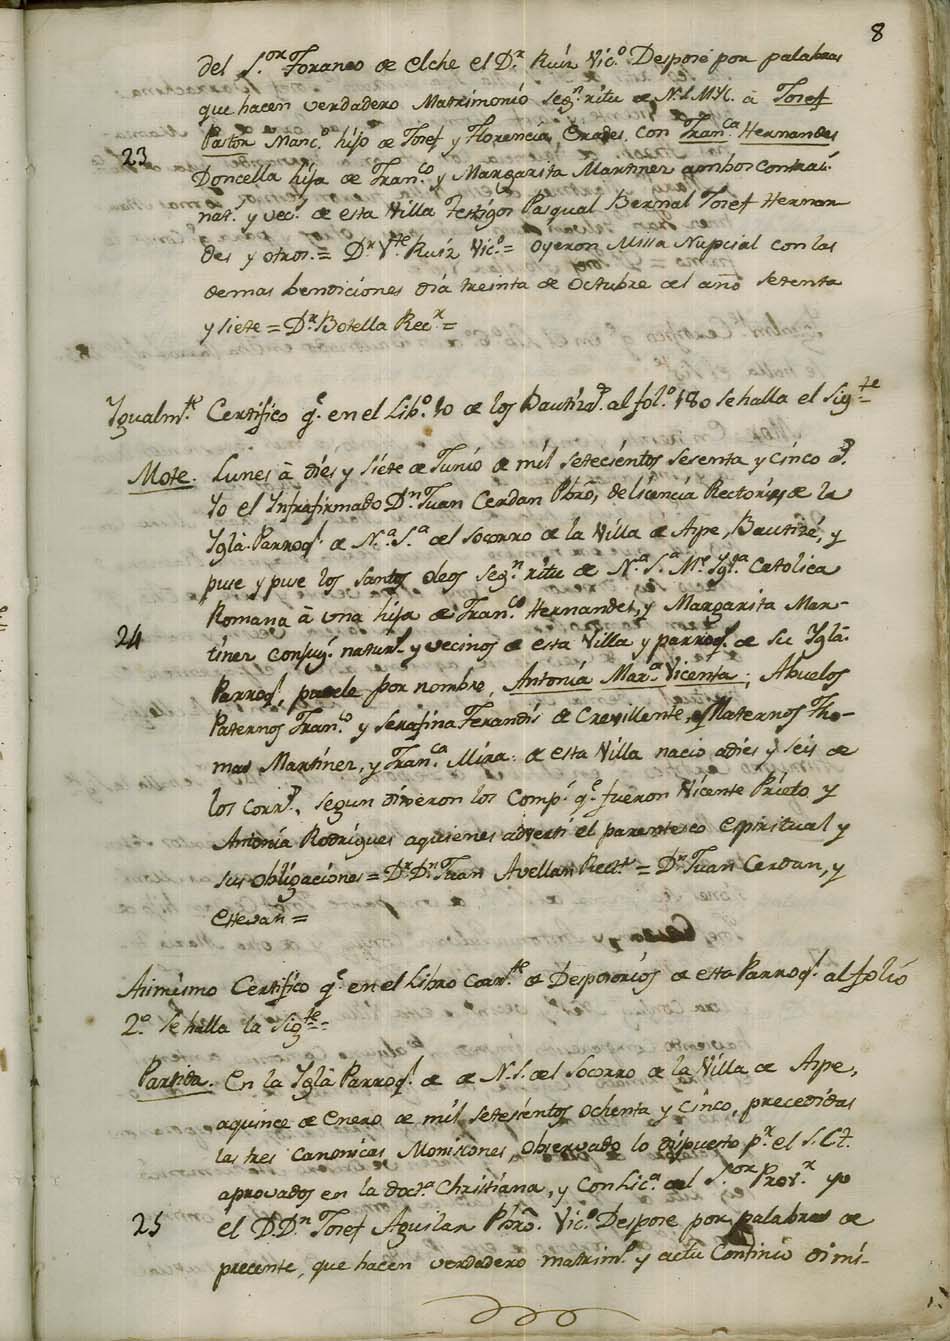 8
del S.or Foraneo de Elche el D.r Ruiz Vic.o Despose por palabras
que hacen verdadero Matrimonio seg.n ritu de N.S.M.Y.C. â Josef
Pastor Manc.o hijo de Josef y Florencia Erades con Fran.ca Hernandes
23
Doncella hija de Fran.co y Margarita Martinez ambos contraî.
nat.s y vec.s de esta Villa Testigos Pasqual Bernal Josef Hernan
des y otros = D.r V.te Ruiz Vic.o = oyeron Missa Nupcial con las
demas bendiciones dia treinta de Octubre del año setenta
y siete = D.r Botella Rec.r =
Ygualm.te Certifico q.e en el Lib.o 10 de los Bautizad.s al fol.o 180 se halla el sig.te
Mote. Lunes â dies y siete de Junio de mil setecientos sesenta y cinco a.s
Yo el Infrafirmado D.n Juan Cerdan Pbro, de licencia Rectoris, de la
Yglâ Parroq.l de N.a S.a del Socorro de la Villa de Aspe, Bautizé, y
puse y puse los santos oleos seg.n ritu de N.a S.a M.e Ygl.a Catolica
Romana â una hija de Fran.co Hernandes, y Margarita Mar-
24
tinez conjug.s natur.s y vecinos de esta Villa y parroq.s de su Yglâ
Parroq.l, pusele por nombre, Antonia Mar.a Vicenta; Abuelos
Paternos Fran.co y Serafina Ferandis de Crevillente, y Maternos Tho-
mas Martinez, y Fran.ca Mira de esta Villa nacio adies y seis de
los corr.s, segun dixeron los Comp.s q.e fueron Vicente Prieto y
Antonia Rodrigues aquienes adverti el parentesco Espiritual y
sus obligaciones = D.r D.n Juan Avellan Rect.r = D.n Juan Cerdan, y
Estevan =
Asimismo Certifico q.e en el Libro Corr.te de Desposorios de esta Parroq.l al folio
2.o se halla la sig.te
Partida. En la Yglâ Parroq.l de de N.S. del Socorro de la Villa de Aspe,
aquince de Enero de mil setesientos ochenta y cinco, precedidas
las tres canonicas Monisiones, observado lo dispuesto p.r el S.C.T.
aprovados en la doct.a Christiana, y con Lic.a del S.or Prov.r yo
25
el D.D.n Josef Aguilar Pbro. Vic.o Despose por palabras de
precente, que hacen verdadero matrim.o y actu Continuo di mi-